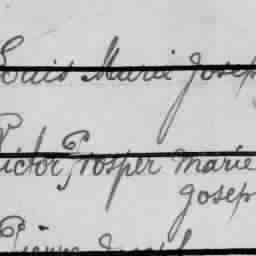 Louis Marie Josep
Victor, Prosper Marie
Josep
Pierre Joseph